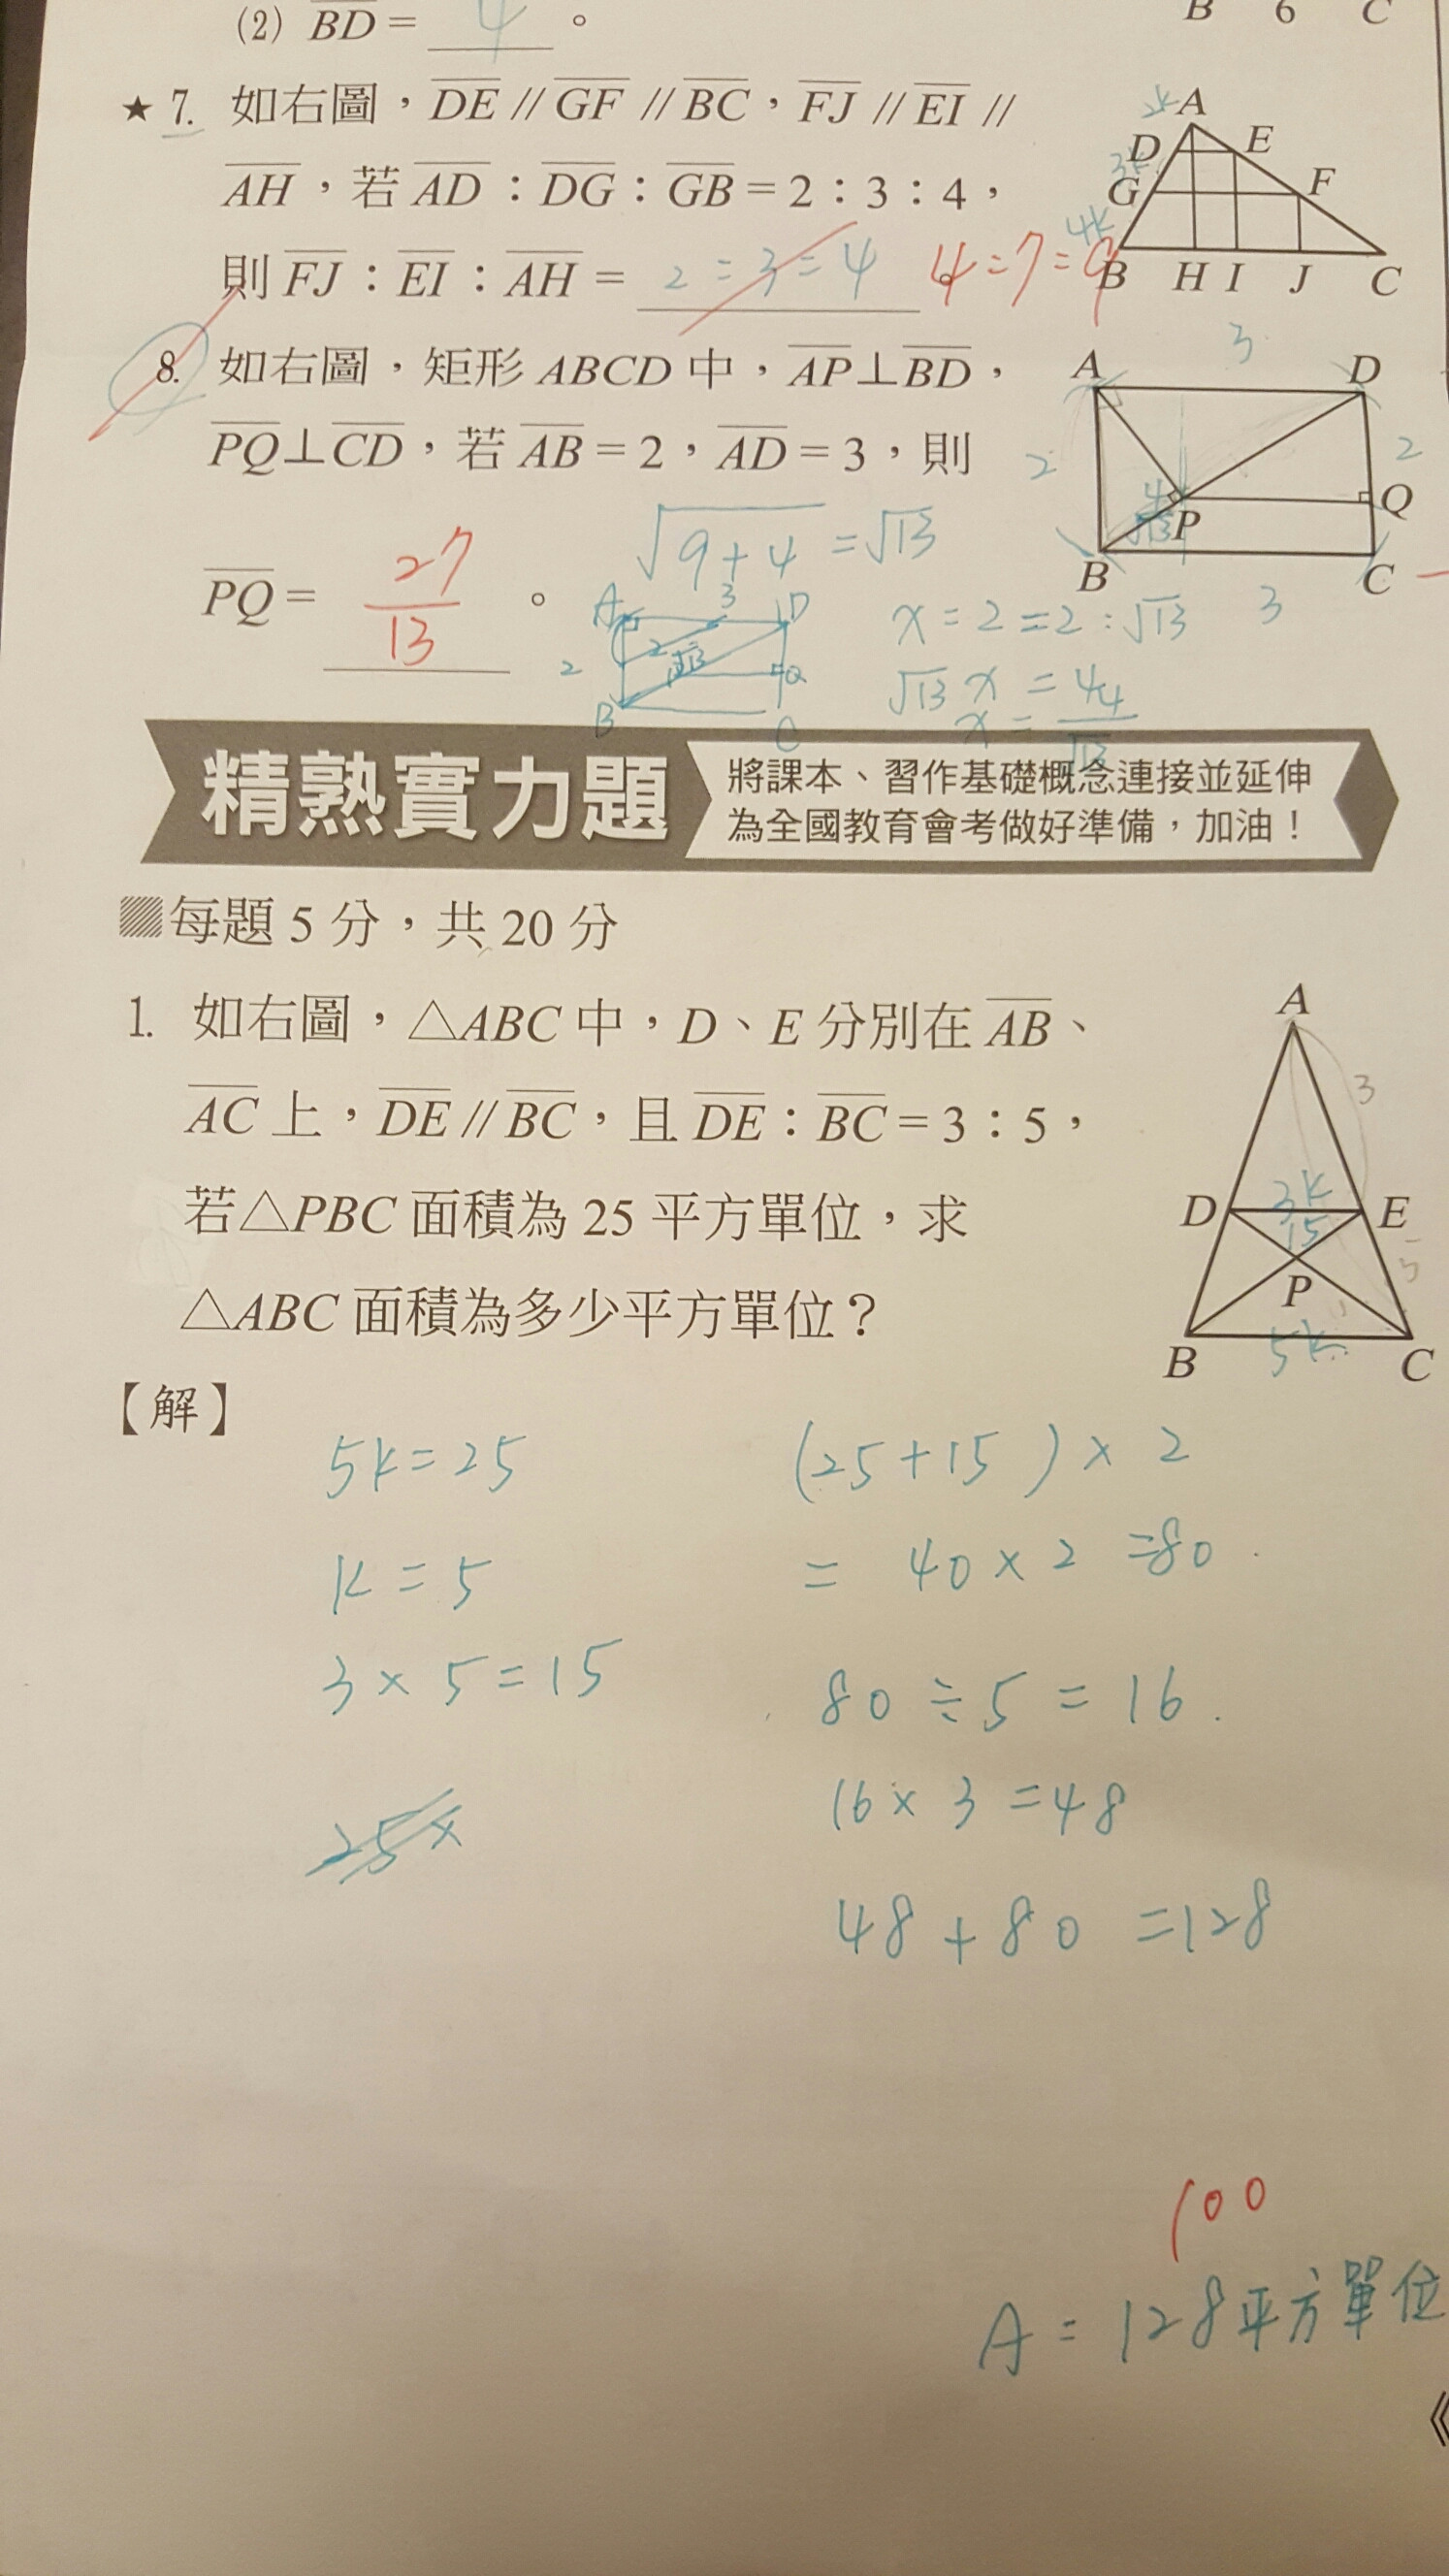 B 6 C
(2) BD = 4 。
★ 7. 如右圖，DE // GF // BC，FJ // EI //
AH，若 AD：DG：GB = 2：3：4，
則 FJ：EI：AH = 2 : 3 : 4 4 : 7 : 9
A
D E
G F
B H I J C
2k
3k
4k
8. 如右圖，矩形 ABCD 中，AP⊥BD，
PQ⊥CD，若 AB = 2，AD = 3，則
PQ = 27/13 。
3
A D
2 2
Q
P
B C
3
4/√13
√9+4 = √13
A 3 D
2 2 √13 Q
B C
x : 2 = 2 : √13
√13 x = 4
x = 4/√13
精熟實力題
將課本、習作基礎概念連接並延伸
為全國教育會考做好準備，加油！
每題 5 分，共 20 分
1. 如右圖，△ABC 中，D、E 分別在 AB、
AC 上，DE // BC，且 DE：BC = 3：5，
若△PBC 面積為 25 平方單位，求
△ABC 面積為多少平方單位？
A
3
D 3k E
15
P
B 5k C
【解】
5k = 25
k = 5
3 × 5 = 15
25 ×
(25 + 15) × 2
= 40 × 2 = 80
80 ÷ 5 = 16.
16 × 3 = 48
48 + 80 = 128
100
A = 128平方單位
《